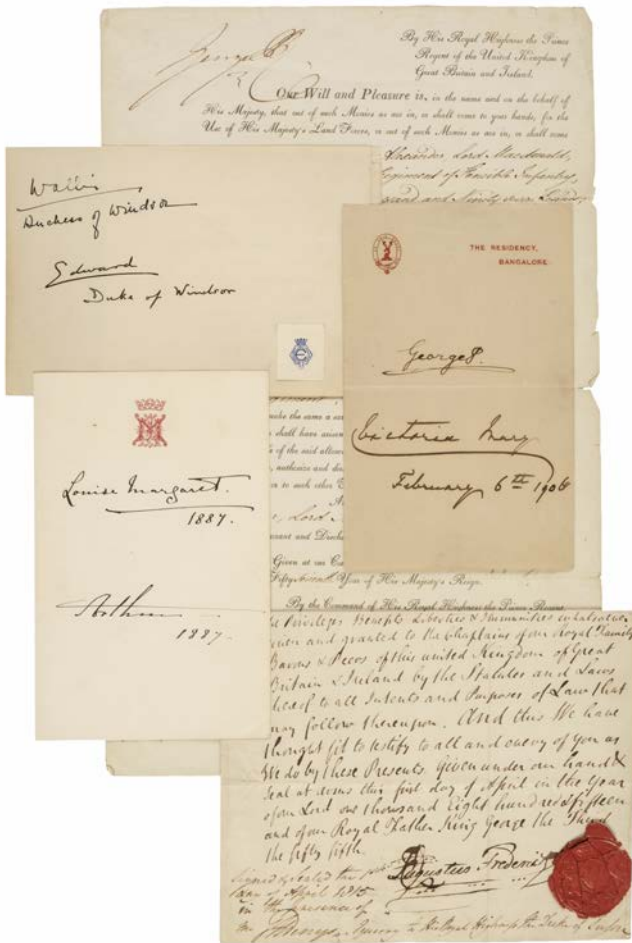 George P R
By His Royal Highness the Prince
Regent of the United Kingdom of
Great Britain and Ireland.
Our Will and Pleasure is, in the name and on the behalf of
His Majesty, that out of such Monies as are in, or shall come to your hands, for the
Use of His Majesty's Land Forces, or out of such Monies as are in, or shall come
Alexander Lord Macdonald,
Regiment of Fencible Infantry,
and Ninety seven
Wallis
Duchess of Windsor
Edward
Duke of Windsor
THE RESIDENCY,
BANGALORE.
George P.
Victoria Mary
February 6th 1906
Louise Margaret.
1887.
Arthur
1887.
make the same a
shall have
of the said
authorize and
to such other
Lord
and Discha
Given at our Ca
Fifty Seventh Year of His Majesty's Reign.
By the Command of His Royal Highness the Prince Regent
Priviledges Benefits Liberties & Immunities whatsoever
given and granted to the Chaplains of our Royal Family
Barons & Peers of this united Kingdom of Great
Britain & Ireland by the Statutes and Laws
thereof to all Intents and Purposes of Law that
may follow thereupon. And this We have
thought fit to testify to all and every of you as
We do by these Presents. Given under our hand &
Seal at arms this first day of April in the Year
of our Lord one thousand Eight hundred & fifteen
and of our Royal Father King George the Third
the fifty fifth.
Signed & Sealed this
day of April 1815
in the presence of
Augustus Frederick
to His Royal Highness the Duke of Sussex